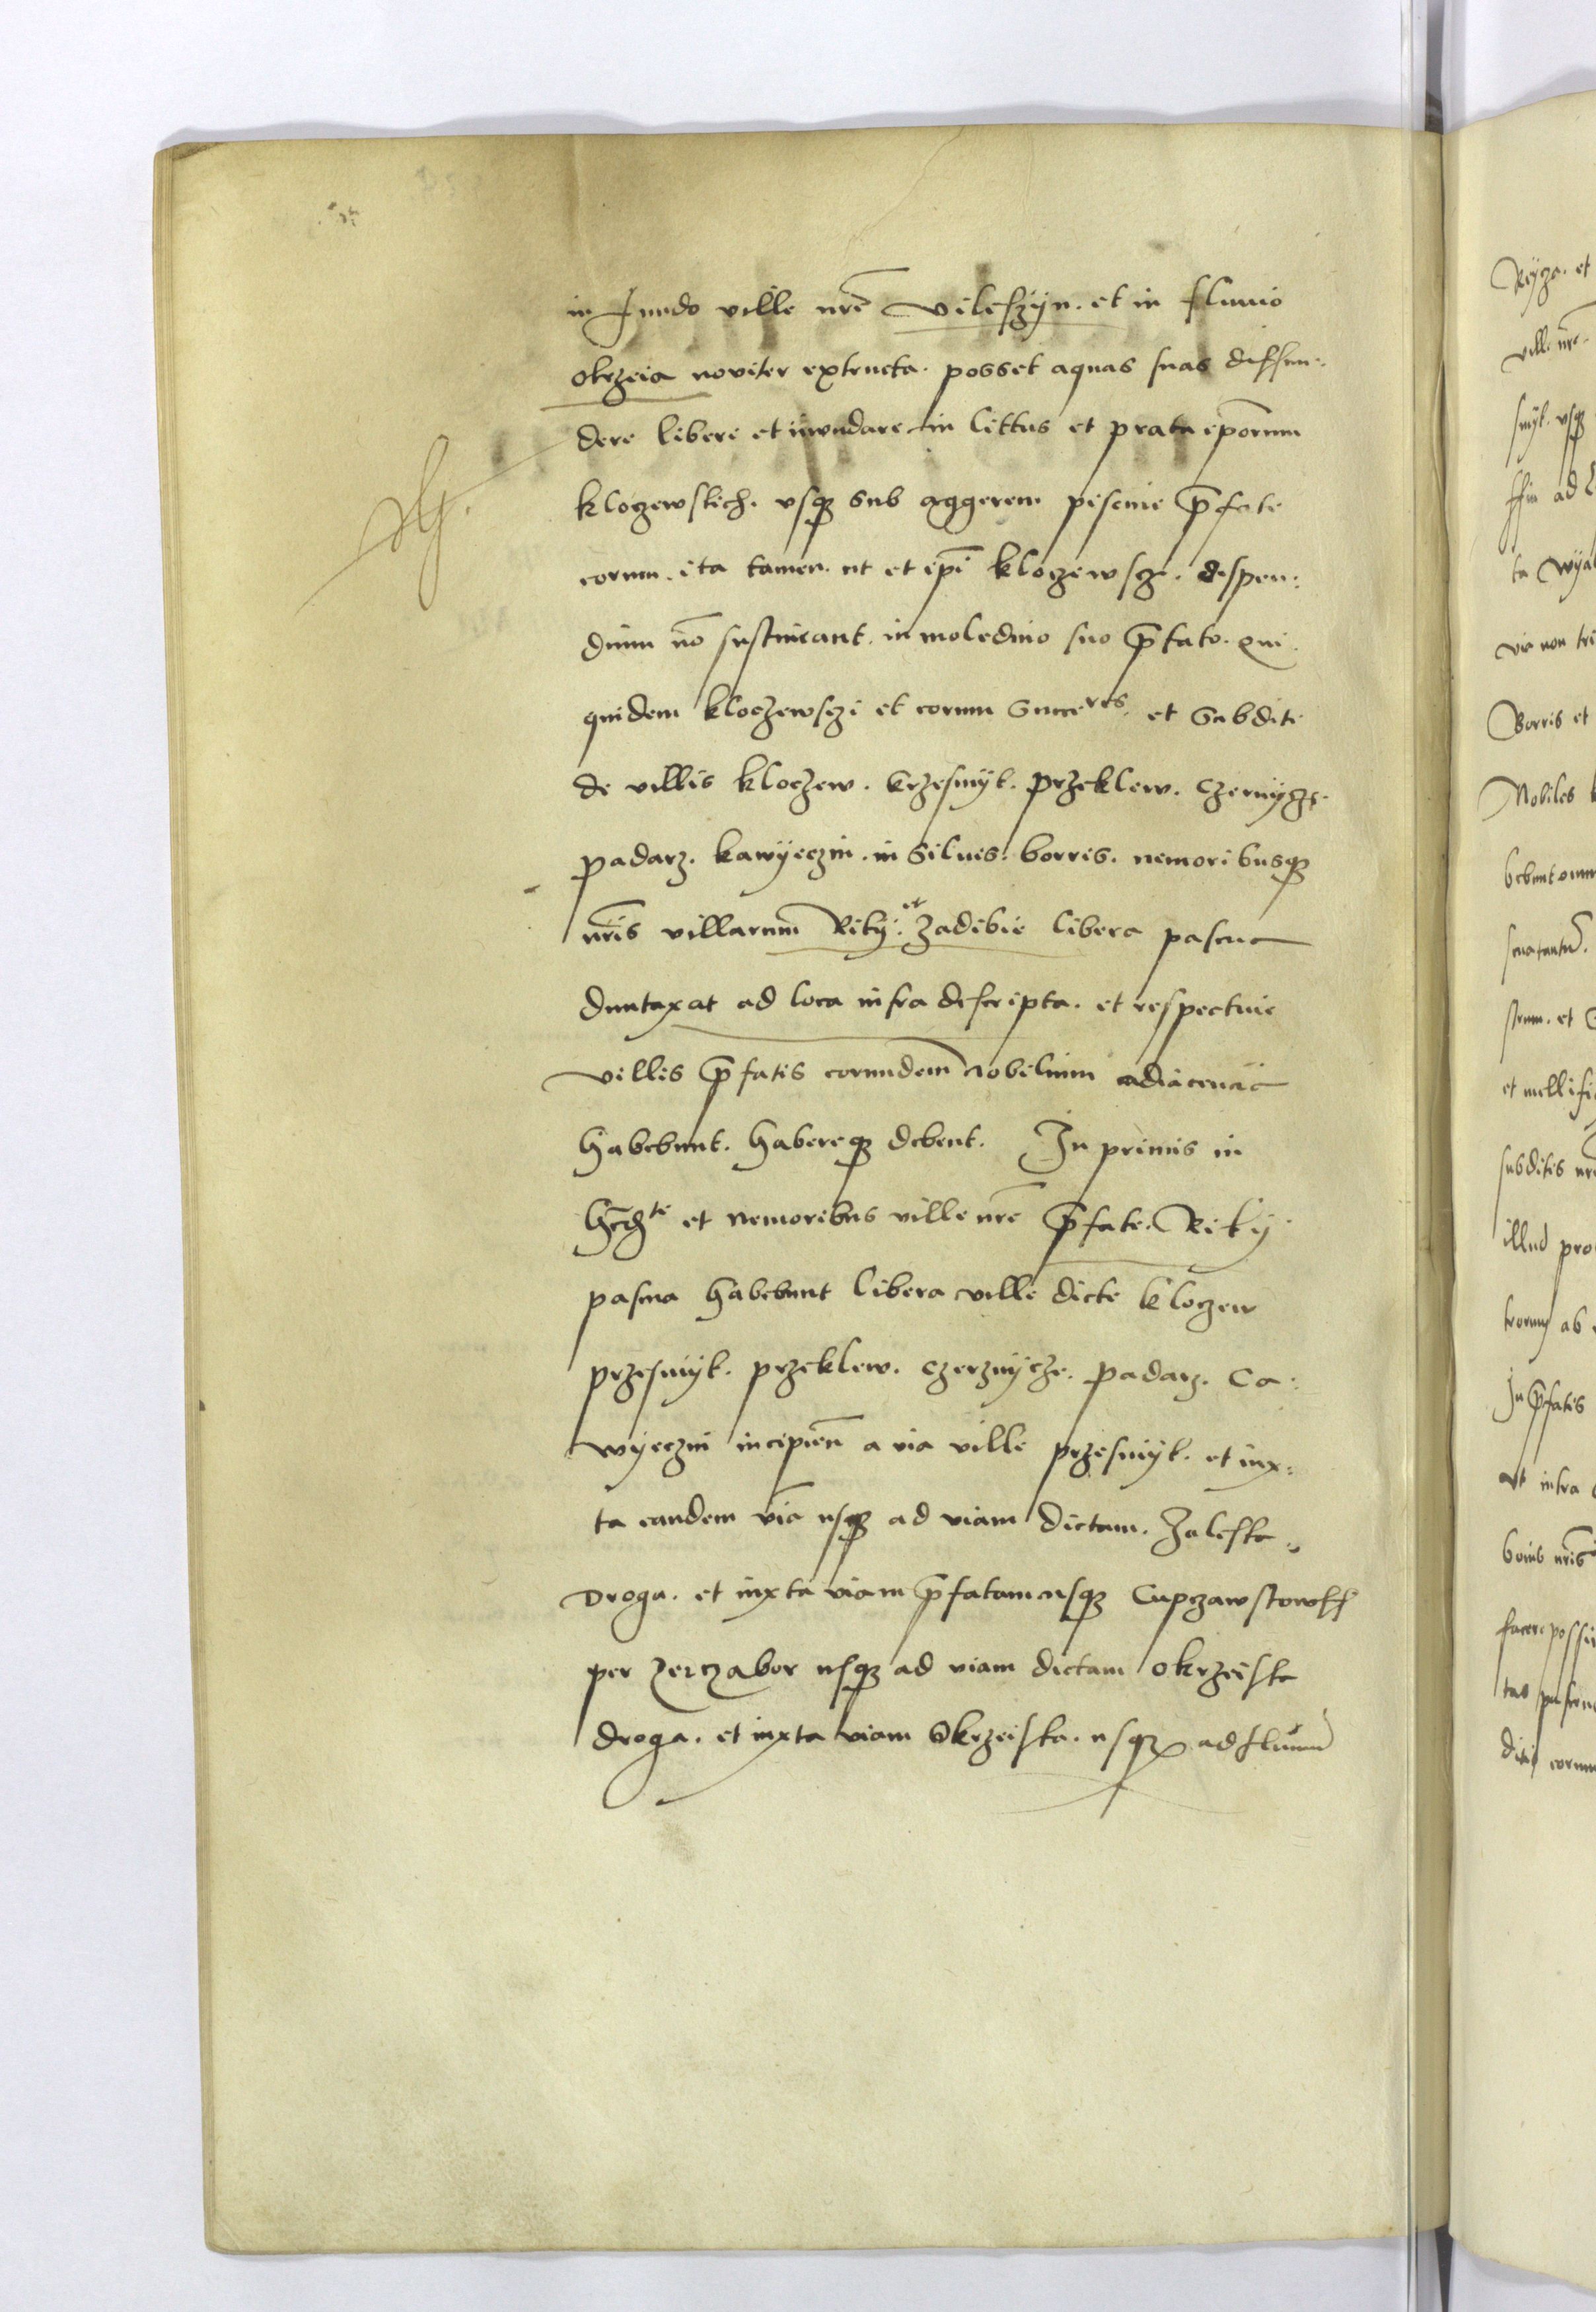 in fundo ville nrē Vileszÿn. et in fluuio
okrzeia noviter extructa. posset aquas suas diffun:
dere libere et inundare in littus et prata ip̄orum
kloczewskich. vsq̨ sub aggerem piscine p̄fate
eorum. ita tamen. ut et ip̄i kloczewscze. dispen:
dium nō sustineant. in moledino suo p̄fato. qui
quidem kloczewsczi et eorum Succeres. et Subditi
de villis kloczew. krzesnÿk. przeklew. Czernÿcze.
padarz. kawÿeczin. in Siluis. borris. nemoribusq̨
nr̄is villarum Rikÿ. et Zadibie libera pascua
duntaxat ad loca infra descripta. et respectiue
villis p̄fatis eorundem Nobilium adiacen̄
habebunt. habereq̨ debent. In primis in
et nemoribus ville nrē p̄fate. Rikÿ
pascua habebunt libera ville dicte kloczew
przesnÿk. przeklew. czerznÿcze. padarz. Ca:
wÿeczin incipien̄ a via ville przesnÿk. et iux:
ta eandem viā usq̨ ad viam dictam. Zaleska
Droga. et iuxta viam p̄fatam usq̨ Cupczawstowkff
per zerczabor usq̨ ad viam dictam okrzeiska
droga. et iuxta viam Okrzeiska. usq̨ ad fluuiū
Reÿcza. et
ville nrē
snÿk. vsq̨
ad
ta wÿa
vie non
Borris et
Nobiles
bebunt
strum. et
et mellifi
subditis
illud pro
ab
In p̄fatis
ut infra
bonis nr̄is
facere possi
eorum